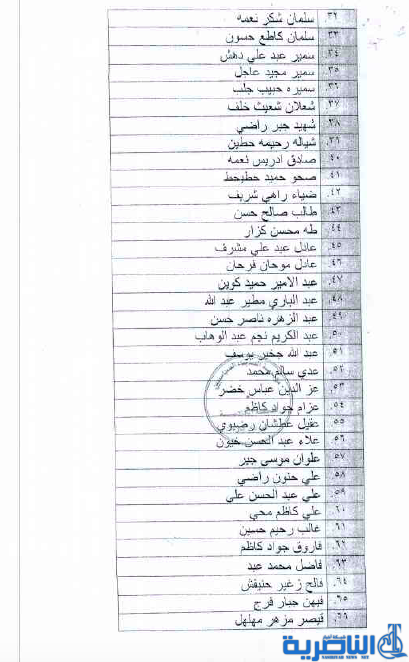 ٣٢. سلمان شكر نعمه
٣٣. سلمان كاطع حسون
٣٤. سمير عبد علي دهش
٣٥. سمير مجيد عاجل
٣٦. سميره حبيب جلب
٣٧. شعلان شعيث خلف
٣٨. شهيد جبر راضي
٣٩. شياله رحيمه حطين
٤٠. صادق ادريس نعمه
٤١. صحو حميد حطيحط
٤٢. ضياء راهي شريف
٤٣. طالب صالح حسن
٤٤. طه محسن كزار
٤٥. عادل عبد علي مشرف
٤٦. عادل موحان فرحان
٤٧. عبد الامير حميد كوين
٤٨. عبد الباري مطير عبد الله
٤٩. عبد الزهره ناصر حسن
٥٠. عبد الكريم نجم عبد الوهاب
٥١. عبد الله جخير يوسف
٥٢. عدي سالم محمد
٥٣. عز الدين عباس خضر
٥٤. عزام جواد كاظم
٥٥. عقيل عطشان رضيوي
٥٦. علاء عبد الحسن خيون
٥٧. علوان موسى جبر
٥٨. علي حنون راضي
٥٩. علي عبد الحسن علي
٦٠. علي كاظم محي
٦١. غالب رحيم حسين
٦٢. فاروق جواد كاظم
٦٣. فاضل محمد عبد
٦٤. فالح زغير حنيفش
٦٥. فيهن جبار فرج
٦٦. قيصر مزهر مهلهل
شبكة أخبار
الناصرية
NASIRIYAH NEWS NET